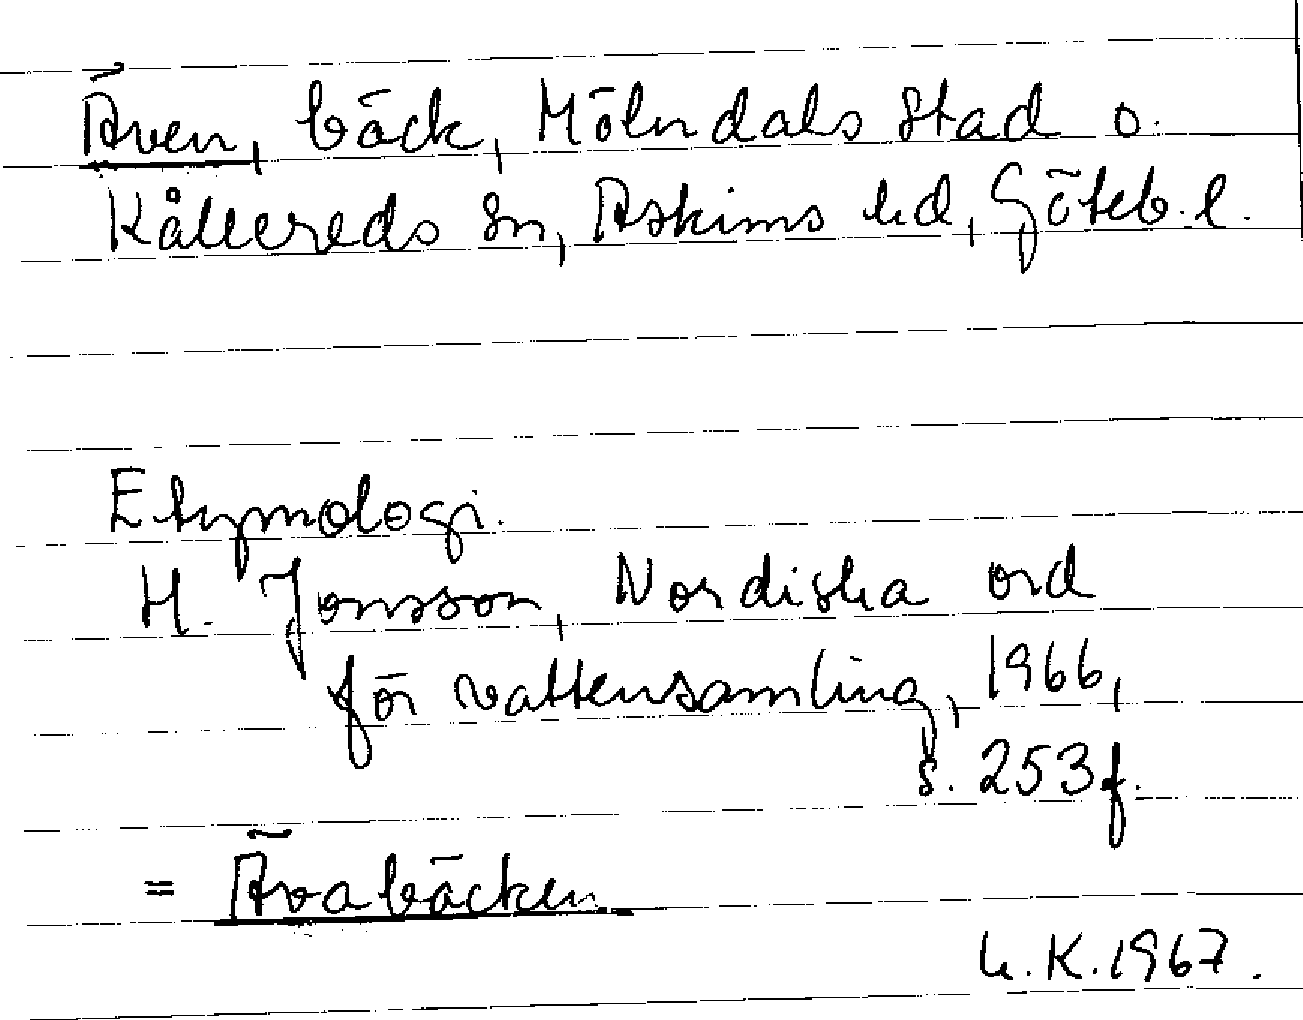 Även, bäck, Mölndals stad o.
Kållereds sn, Askims hd, Göteb. l.
Etymologi.
H. Jonsson, Nordiska ord
för vattensamling, 1966,
s. 253f.
= Ävabäcken
h.K. 1967.